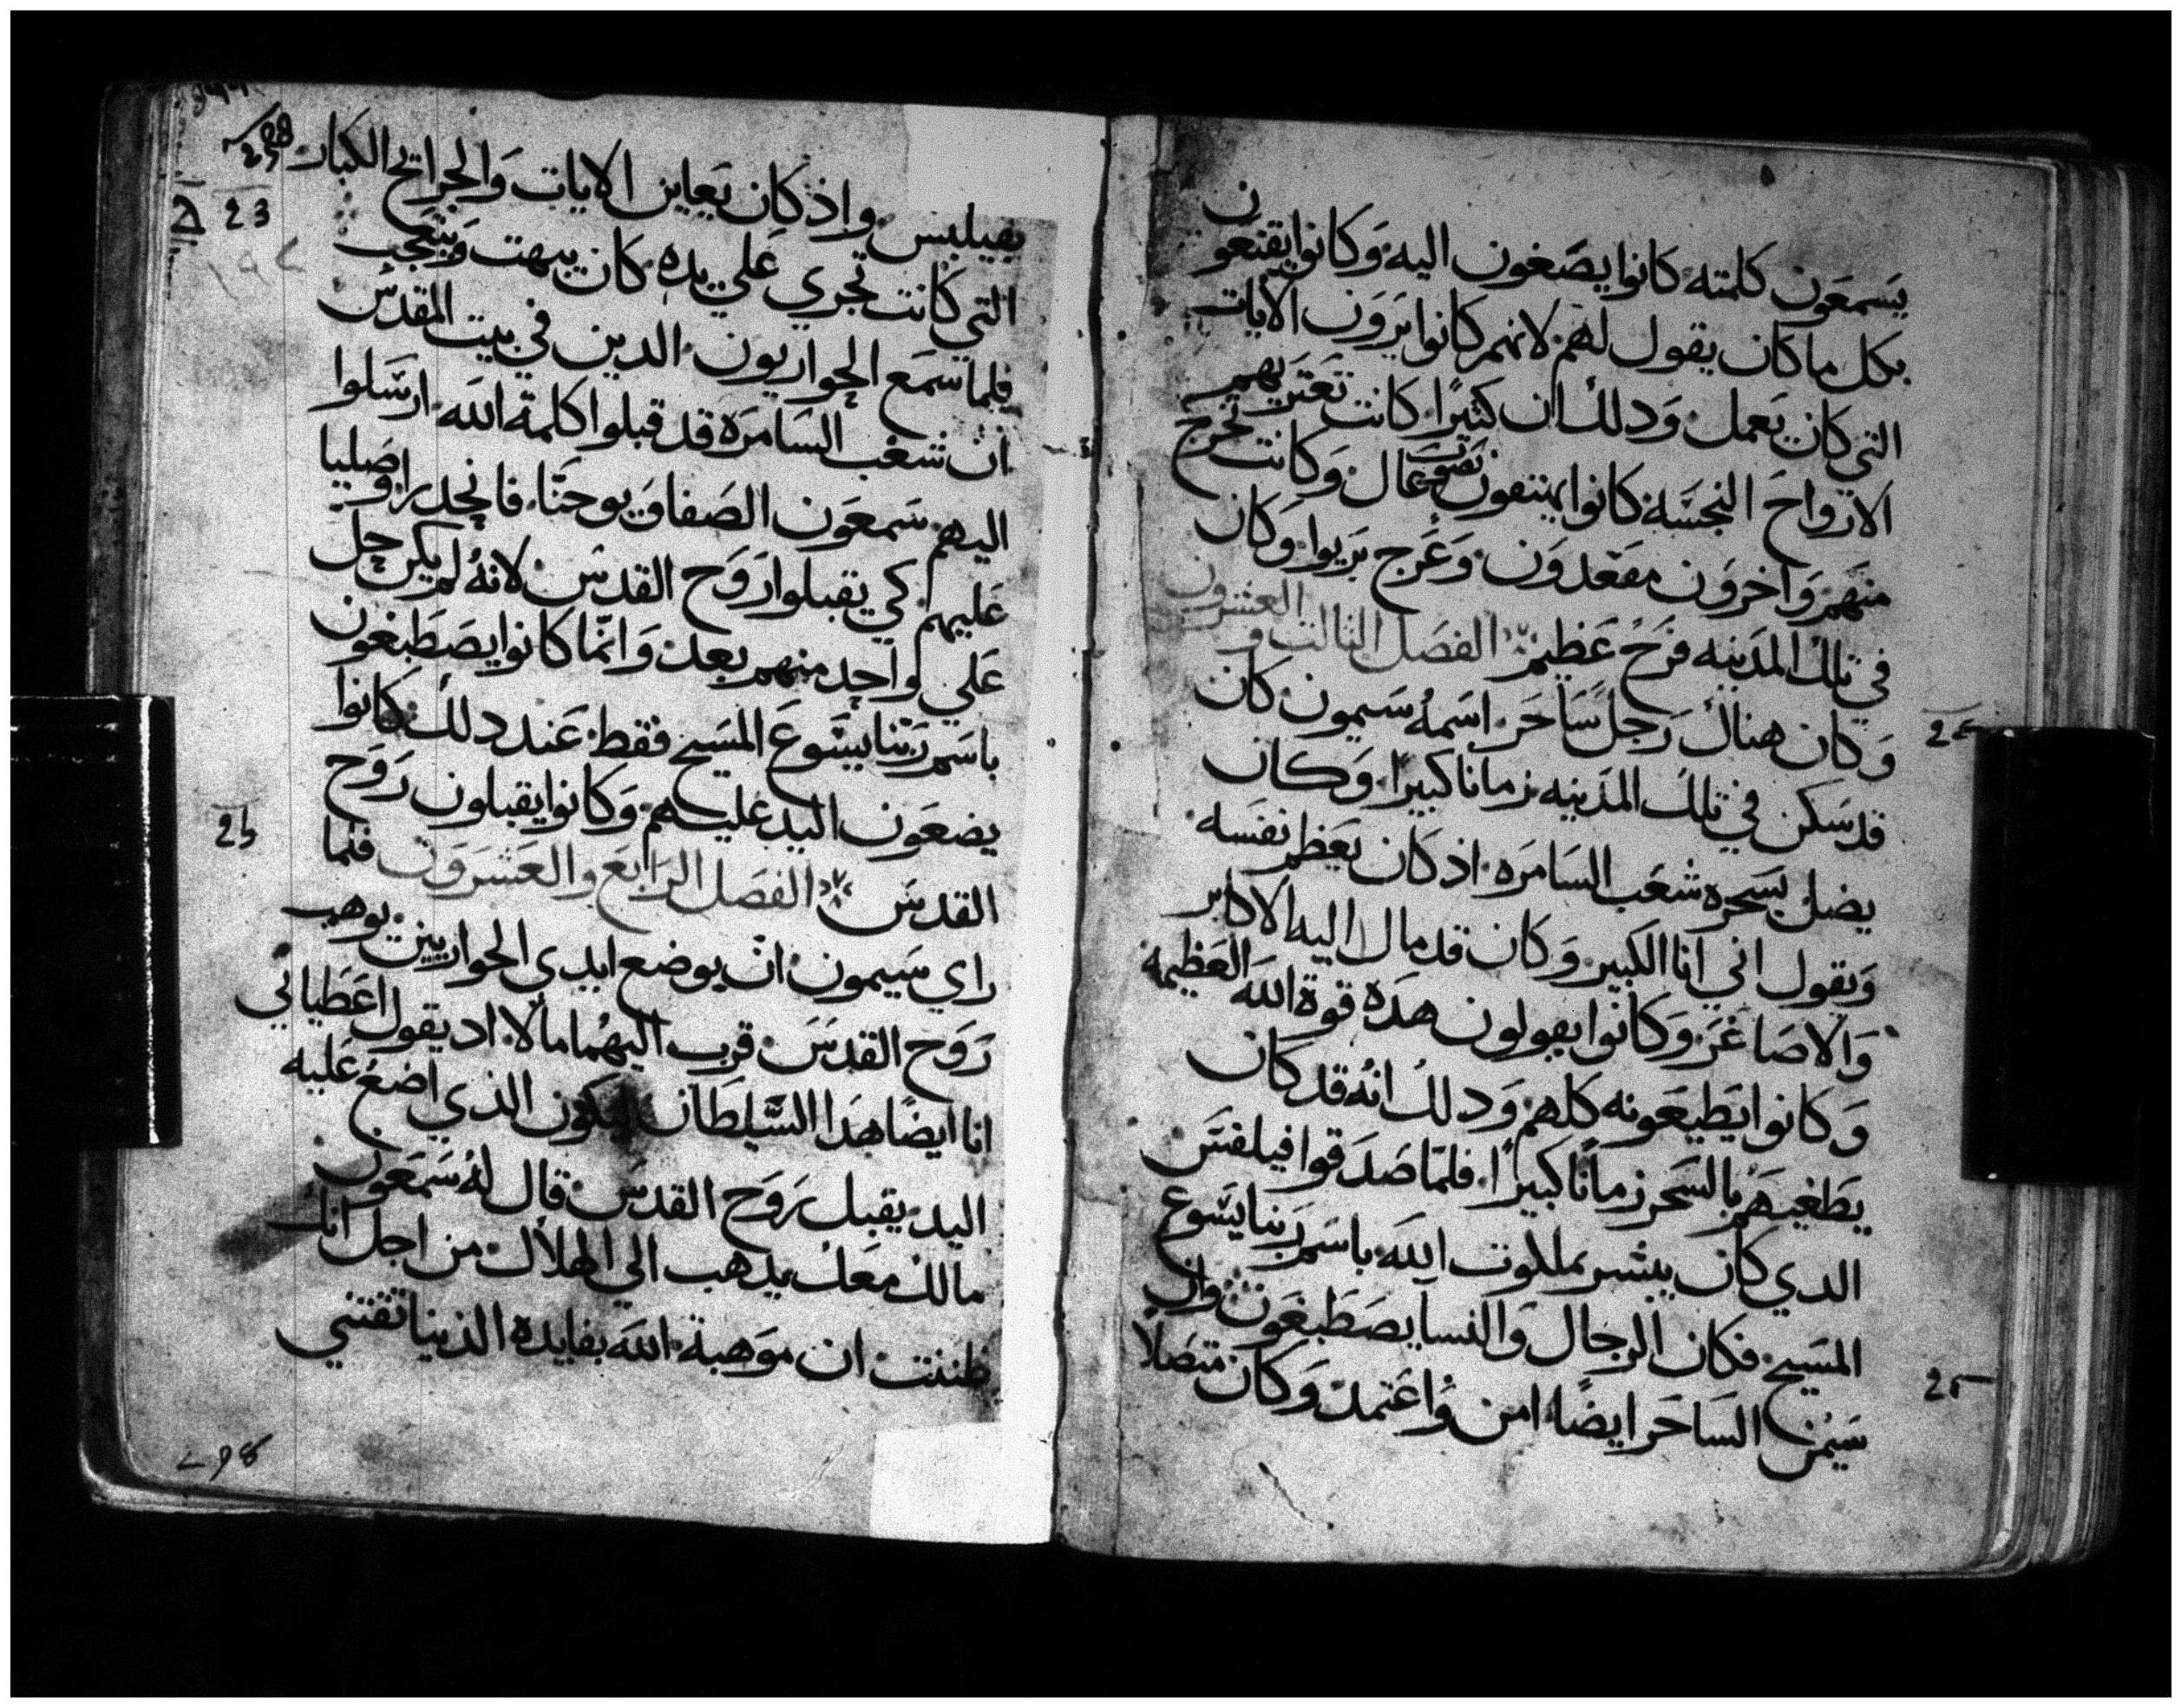 يسمعون كلمته كانوا يصغون اليه وكانوا يقنعون
بكل ما كان يقول لهم لانهم كانوا يرون الايات
التي كان يعمل ودلك ان كثيرًا كانت تعتريهم
الارواح النجسه كانوا يهتفون بصوت عال وكانت تخرج
منهم واخرون مقعدون وعرج بريوا وكان
في تلك المدينه فرح عظيم الفصل الثالث والعشرون
وكان هناك رجل ساحر اسمه سيمون كان
قد سكن في تلك المدينه زمانا كبيرًا وكان
يضل بسحره شعب السامره اذ كان يعظم نفسه
ويقول اني انا الكبير وكان قد مال اليه الاكابر
والاصاغر وكانوا يقولون هده قوة الله العظيمه
وكانوا يطيعونه كلهم ودلك انه قد كان
يطغيهم بالسحر زمانًا كبيرًا فلما صدقوا فيلفس
الدي كان يبشر بملكوت الله باسم ربنا يسوع
المسيح فكان الرجال والنسا يصطبغون وان
سيمن الساحر ايضًا امن واعتمد وكان متصلا
بفيلبس واذ كان يعاين الايات والجرايح الكبار
التي كانت تجري علي يده كان يبهت ويتعجب
فلما سمع الحواريون الدين في بيت المقدس
ان شعب السامره قد قبلوا كلمة الله ارسلوا
اليهم سمعون الصفا ويوحنا فانحدرا وصليا
عليهم كي يقبلوا روح القدس لانه لم يكن حل
علي واحد منهم بعد وانما كانوا يصطبغون
باسم ربنا يسوع المسيح فقط عند دلك كانوا
يضعون اليد عليهم وكانوا يقبلون روح
القدس الفصل الرابع والعشرون فلما
راي سيمون ان بوضع ايدي الحواريين يوهب
روح القدس قرب اليهما مالا اد يقول اعطياني
انا ايضا هدا السلطان ليكون الذي اضع عليه
اليد يقبل روح القدس قال له سمعون
مالك معك يدهب الي الهلاك من اجل انك
ظننت ان موهبة الله بفايدة الدنيا تقتني
23
25